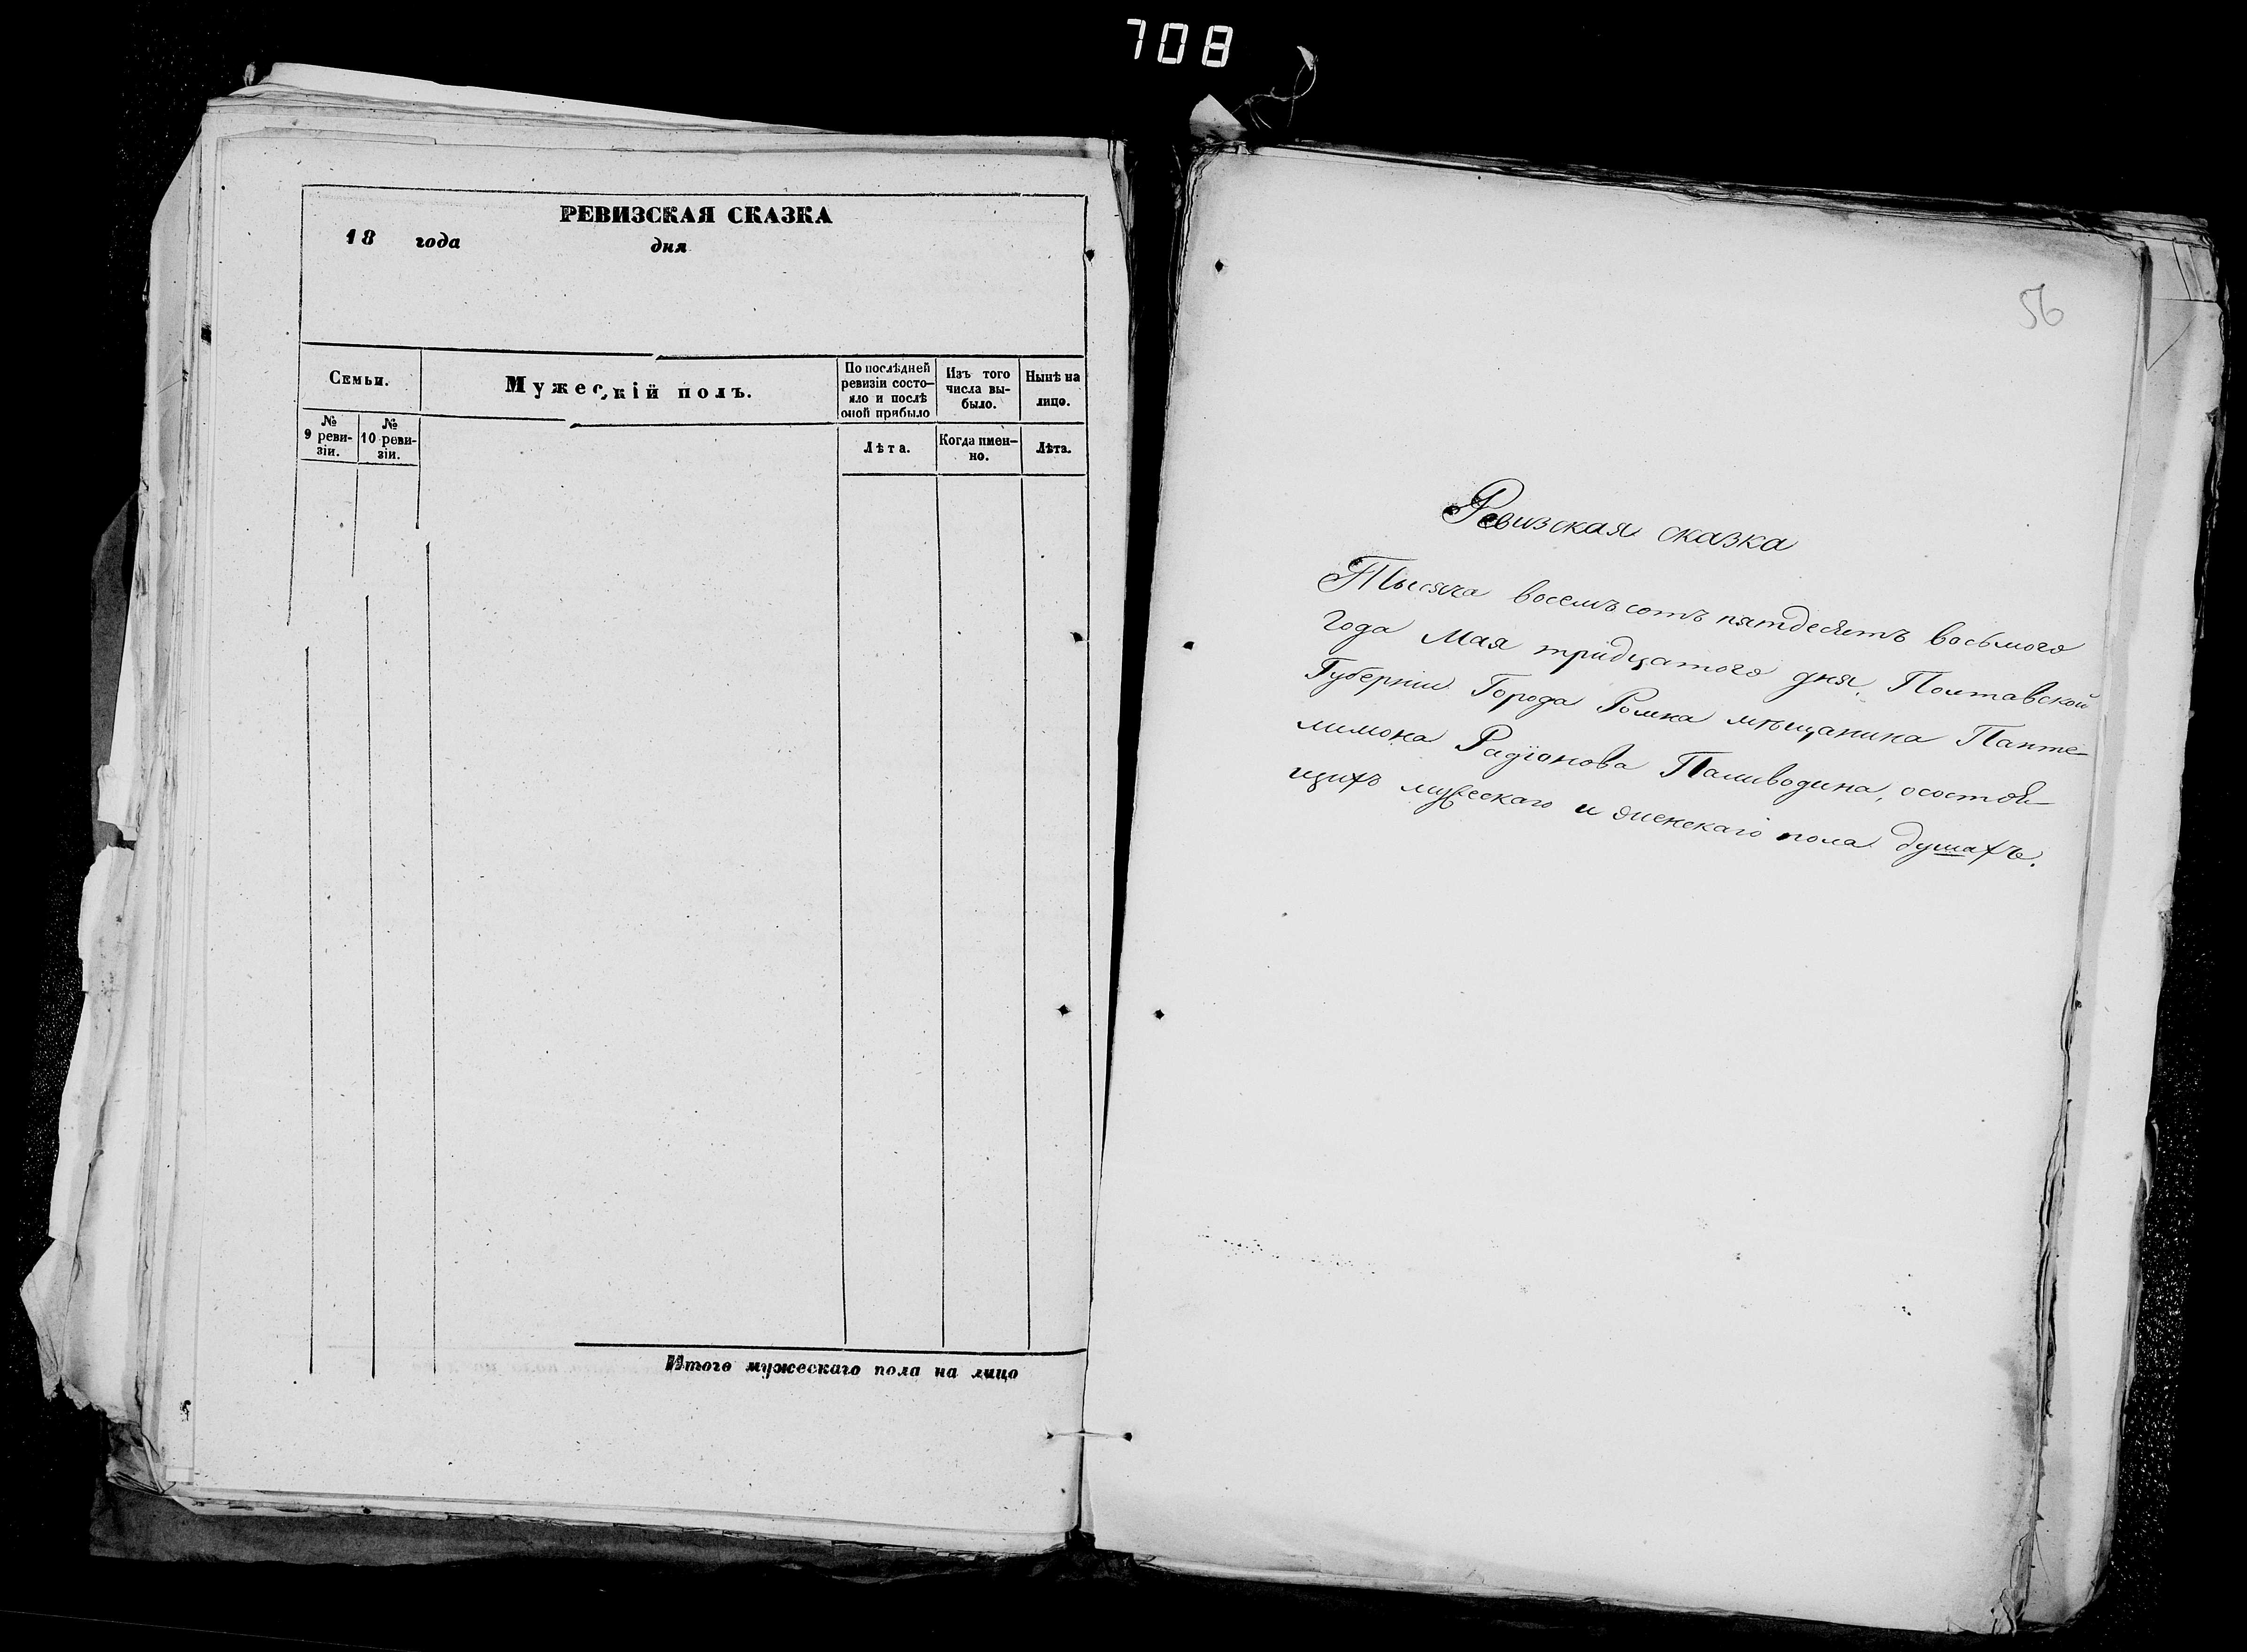 708
РЕВИЗСКАЯ СКАЗКА
18 года дня
Семьи.
Мужескій полъ.
По послѣдней
ревизіи состо-
яло и послѣ
оной прибыло
Изъ того
числа вы-
было.
Нынѣ на
лицо.
№
9 реви-
зіи.
№
10 реви-
зіи.
Лѣта.
Когда имен-
но.
Лѣта.
Итого мужескаго пола на лицо
56
Ревизская сказка
Тысяча восемъсотъ пятдесятъ восьмого
года Мая тридцатого дня, Полтавской
Губерніи Города Ромна мѣщанина Панте-
лимона Радіонова Паливодина, осостоя-
щихъ мужескаго и женскаго пола душахъ.